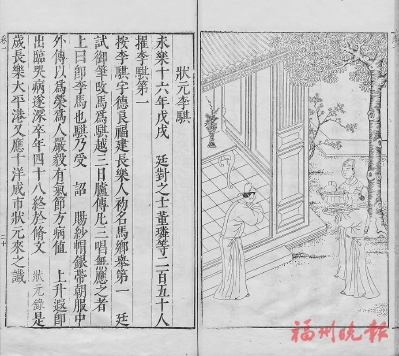 狀元李騏
永樂十六年戊戌 廷對之士董璘等二百五十人
擢李騏第一
按李騏字德良福建長樂人初名馬鄉舉第一 廷
試御筆改馬爲騏越三日臚傳凡三唱無應之者
上曰卽李馬也騏乃受 詔 賜紗帽銀帶朝服中
外傳以爲榮爲人嚴毅有氣節方病値 上升遐卽
出臨哭病遂深卒年四十八終於脩文 狀元錄 是
歲長樂大平港又應十洋成市狀元來之讖
二十
福州晚报